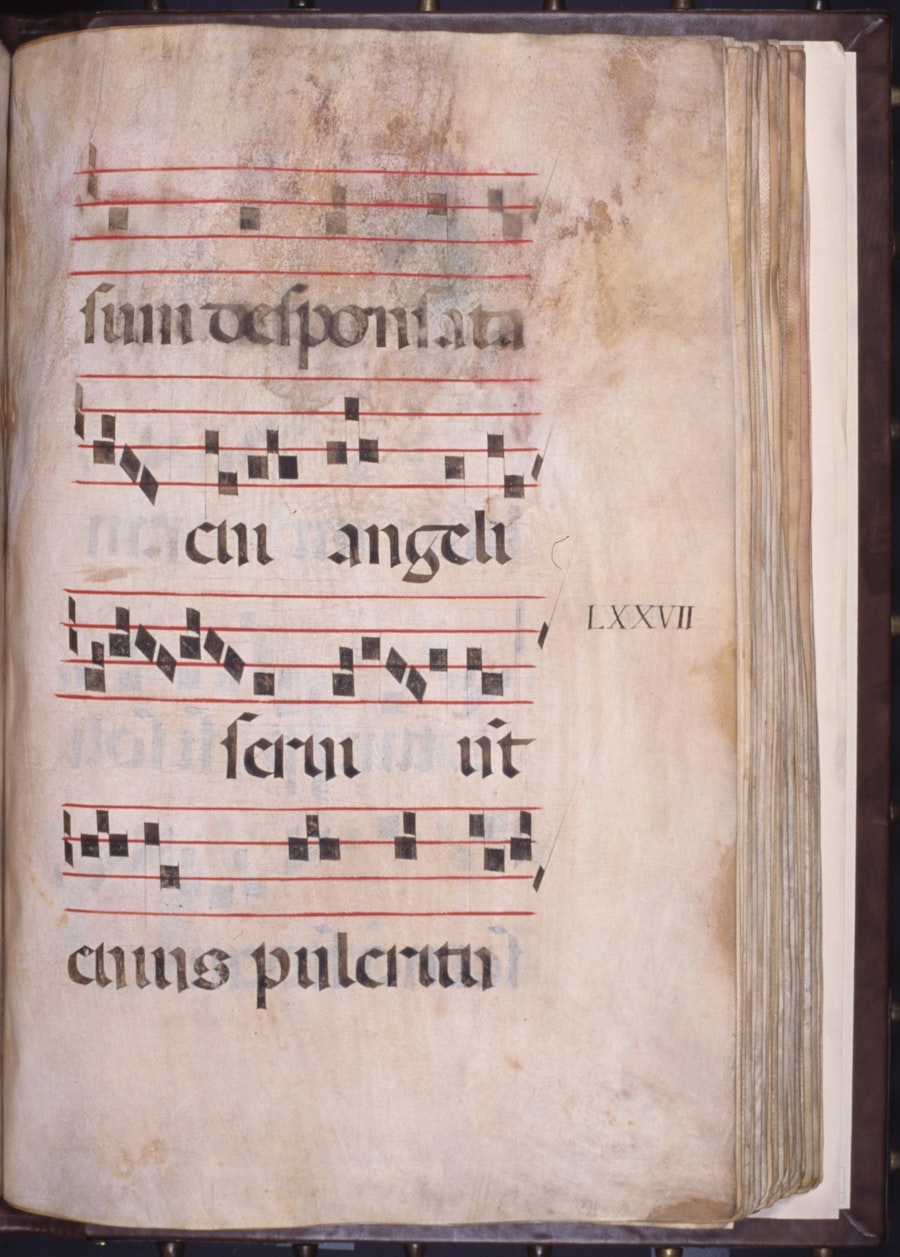 sum desponsata
cui angeli
LXXVII
serui ūt
cuius pulcritu